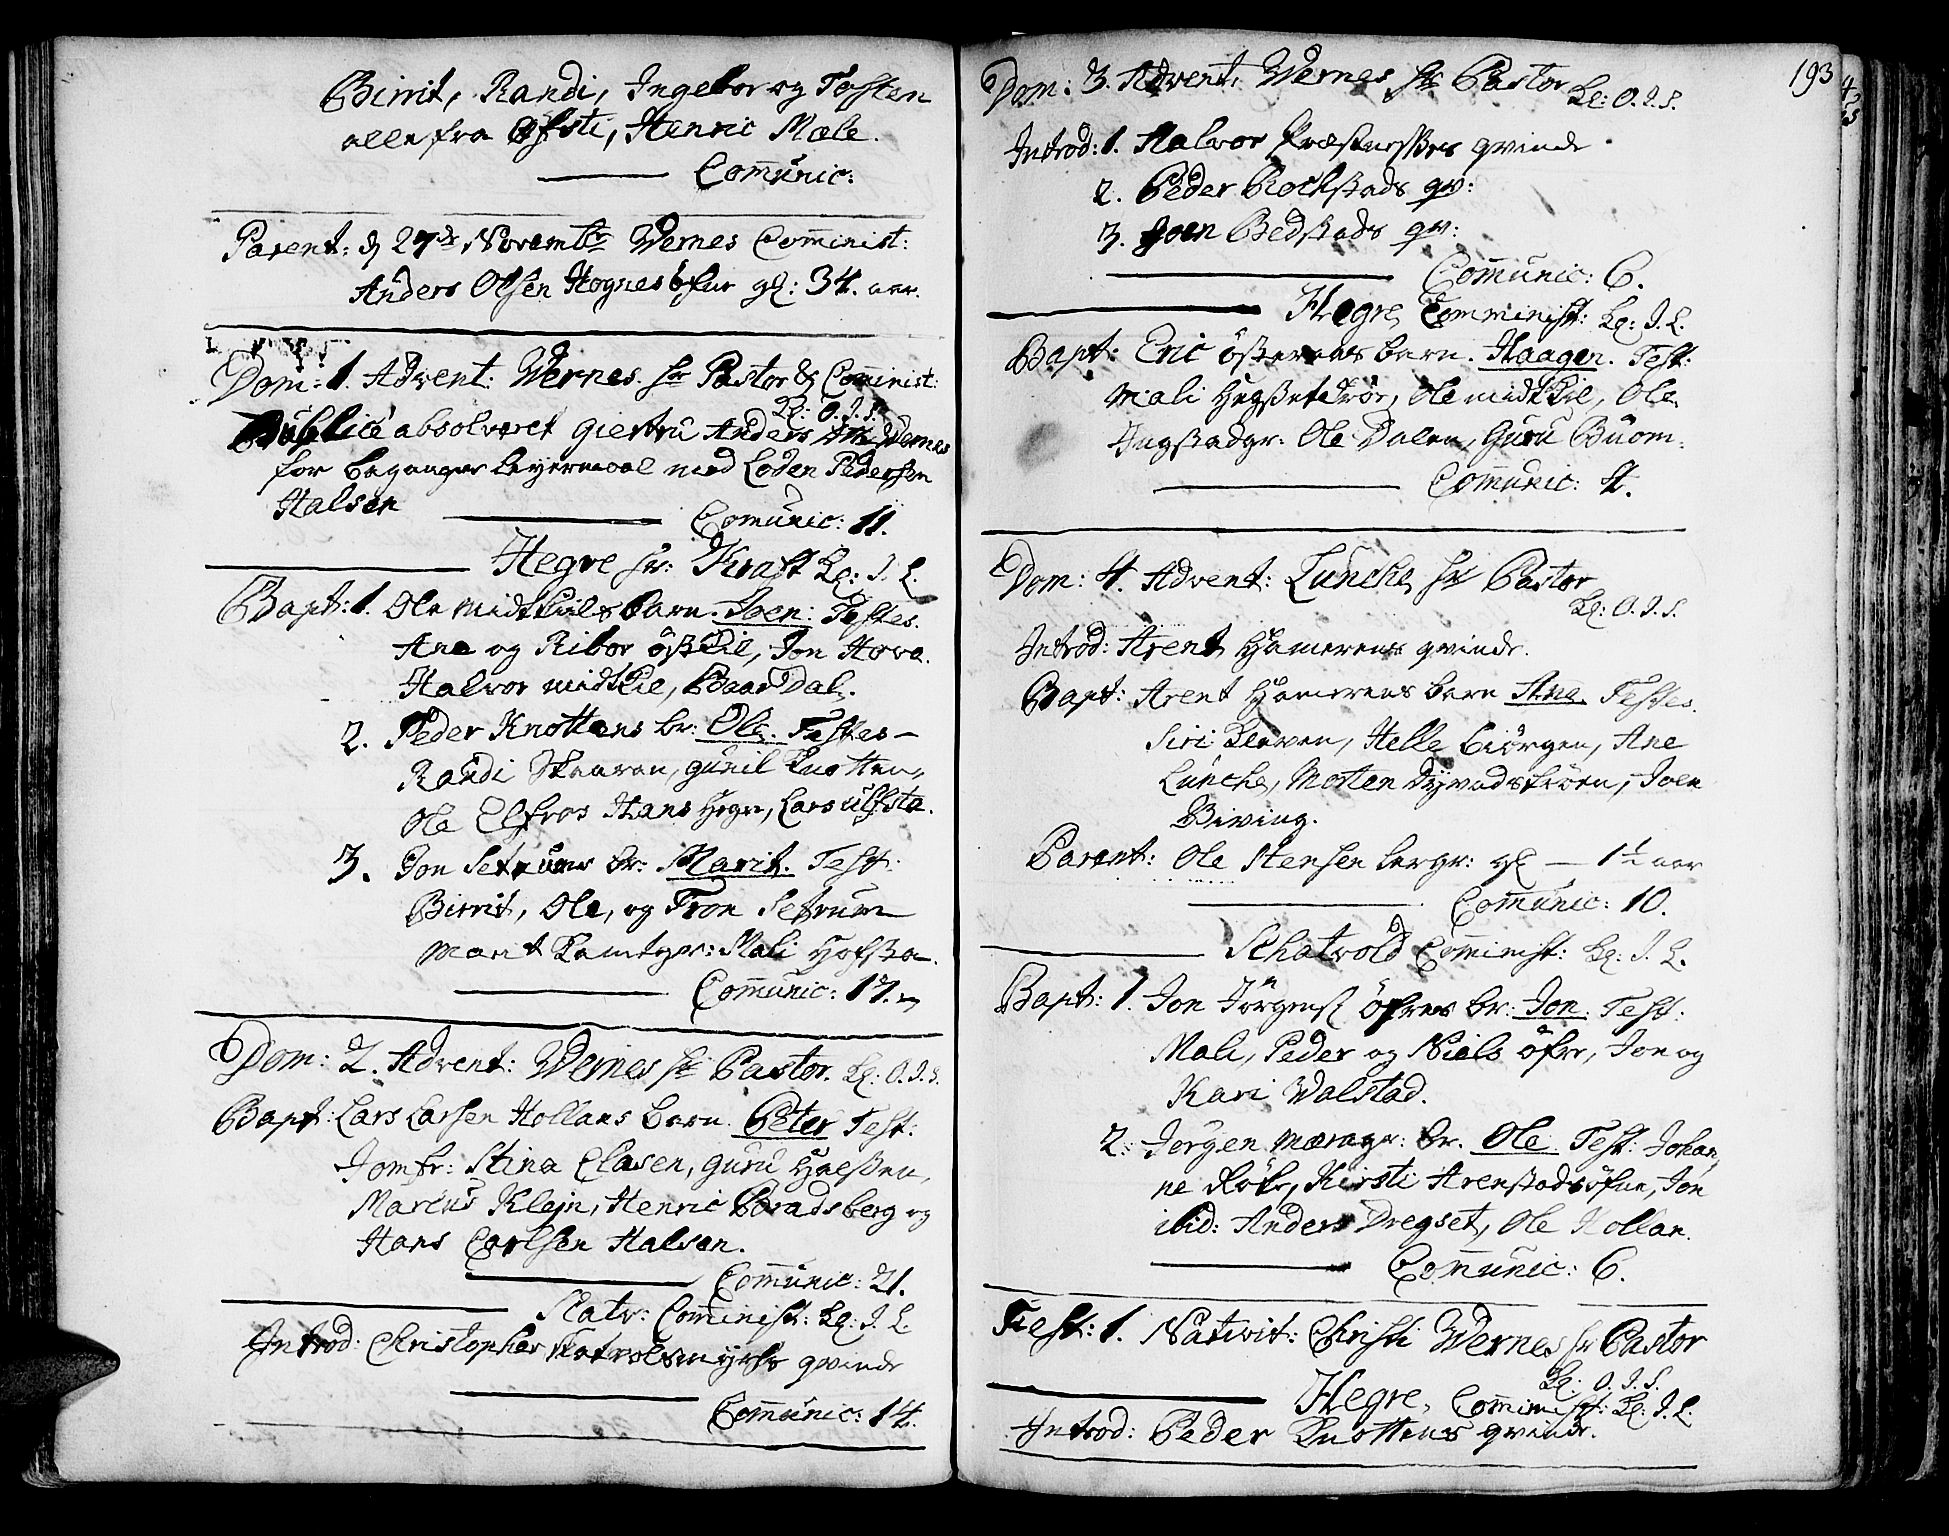 Birrit, Randi, Ingebor og Tosten
alle fra Øfsti, Henric Mæle.
Com̄unic:
Parent: d 27de Novembr Wernes Com̄inist:
Anders Olsen Hognes gl: 34. aar.
Dom: 1. Advent: Wernes. Hr Pastor & Com̄inist:
Kl: O. J. S.
Publice absolveret Giertru Anders Wernes
for begangen leyermaal med Loden Pedersen
Halsen
Com̄unic: 11.
Hegre Hr: Kraft Kl: J. L.
Bapt: 1. Ole Midtkiils barn. Joen: Testes.
Ane og Ribor östkiil, Jon Hove.
Halvor midtkiil, Baar Dal.
2. Peder Knottens br: Ole. Testes
Randi Skaaren, gunil Knotten,
Ole Elfros Hans Hegre, Lars ulfsta.
3. Jon Setrums br: Marit. Test:
Birrit, Ole, og Tron Setrum
Marit Mali Hofsta.
Com̄unic: 17.
Dom: 2. Advent: Wernes Hr Pastor. Kl: O. J. S.
Bapt: Lars Larsen Hollans barn. Peter Test:
Jomfr: Stina Clasen, guru Halsen,
Marcus Klejn, Henric Bradsberg og
Hans Carlsen Halsen.
Com̄unic: 21.
Skatv: Com̄inist: Kl: J. L.
Introd: Christopher Skatvolsmyrhr qvinde
Com̄unic: 14.
193
Dom: 3. Advent: Wernes Hr Pastor Kl: O. J. S.
Introd: 1. Halvor qvinde
2. Peder Rockstads qv:
3. Joen Bedstads qv:
Com̄unic: 6.
Hegre, Com̄minist: Kl: J. L.
Bapt: Eric österaas barn. Haagen. Test:
Mali Ole midtkiil, Ole
Ingstadgr. Ole Dalen, Guru Buom.
Com̄unic: 4.
Dom: 4. Advent: Luncke Hr Pastor
Kl: O. J. S.
Introd: Arent Hamerens qvinde.
Bapt: Arent Hamerens barn Ane. Testes.
Siri Kleven, Helle biörgen, Ane
Luncke, Motten Dyvadskröen, Joen
Biving.
Parent: Ole Stensen bergr: gl — 1½ aar
Com̄unic: 10.
Schatvold Com̄inist: Kl: J. L.
Bapt: 1. Jon Jörgens. öfres br: Jon. Test:
Mali, Peder og Niels öfre, Jon og
Kari Walstad.
2. Jörgen Mæragr: br. Ole Test: Johan,
ne Röke, Kirsti Arenstadsöfne, Jon
ibid: Anders Dregset, Ole Hollan.
Com̄unic: 6.
Fest: 1. Nativit: Christi Wernes Hr Pastor
Kl: O. J. S.
Hegre, Com̄inist: Kl: J. L.
Introd: Peder Knottens qvinde.